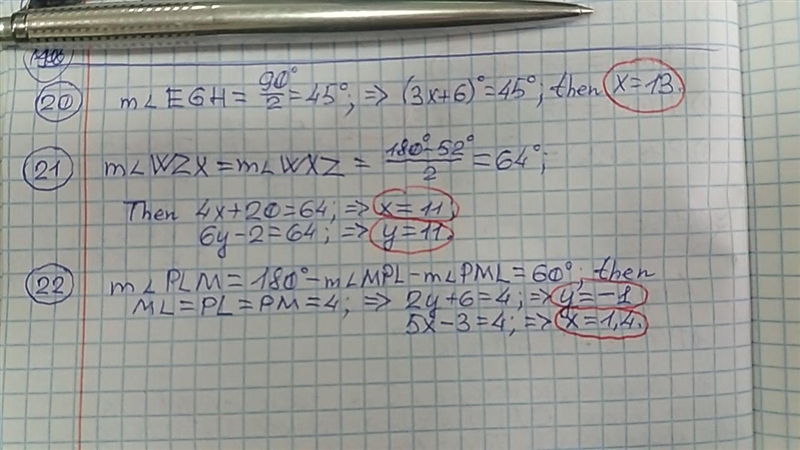 20 m∠EGH = 90°/2 = 45°; => (3x+6)° = 45°; then x=13.
21 m∠WZX = m∠WXZ = 180°-52°/2 = 64°;
Then 4x+20=64; => x=11.
6y-2=64; => y=11.
22 m∠PLM = 180°-m∠MPL-m∠PML=60°; then
ML=PL=PM=4; => 2y+6=4; => y=-1
5x-3=4; => x=1,4.